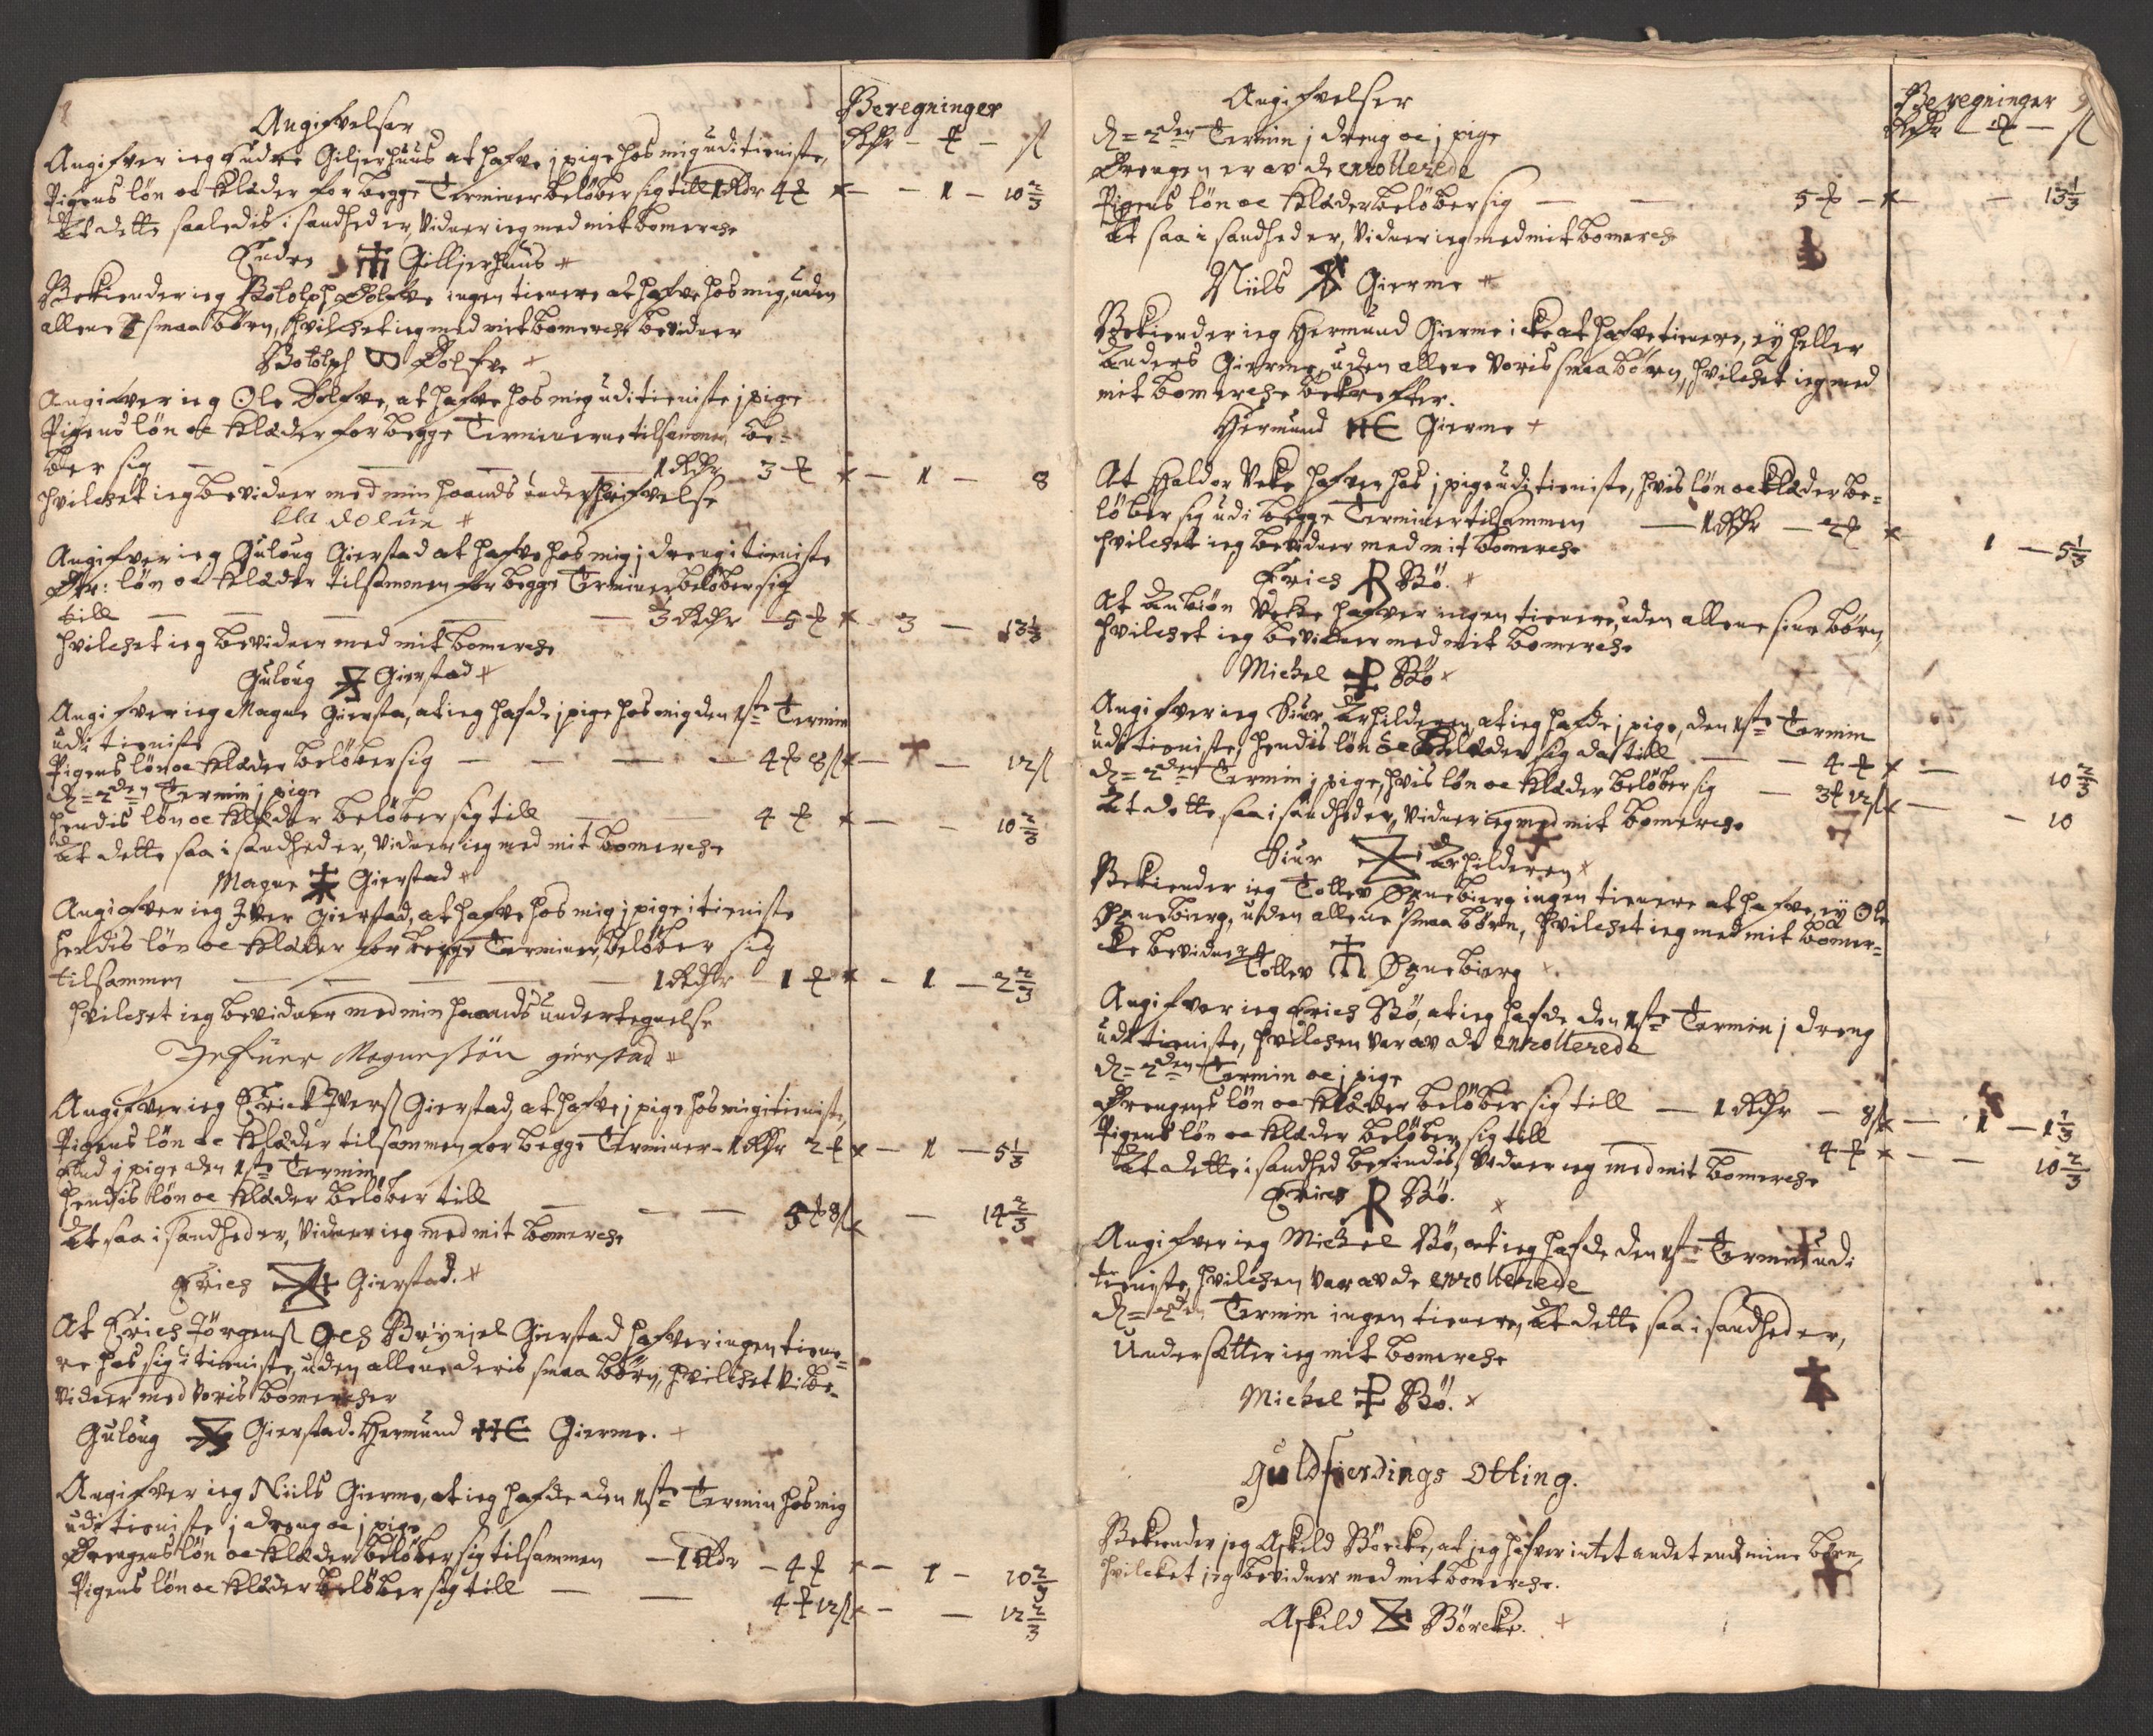 Angifvelser
Beregninger
Rdr - ₰ - ß
Angifver ieg Endre Giljerhuus at hafve j pige hos mig udi tieniste,
Pigens løn oc Klæder for begge Terminer beløber sig till 1 Rdr 4 ₰ - 1 - 10 2/3
At dette saaledis i sandhed er, Vidner ieg med mit bomerche
Endre Gilljerhuus
Bekiender ieg Botolph Dolfve ingen tienere at hafve hos mig, uden
allene 2 smaa børn, hvilchet ieg med mit bomerche bevidner
Botolph Dolfve
Angifver ieg Ole Dolfve, at hafve hos mig udi tieniste j pige
Pigens løn oc Klæder for begge Terminerne tilsammen be=
løber sig 1 Rdr 3 ₰ - 1 - 8
hvilchet ieg bevidner med min haands underskrifvelse
Ola Dolue
Angifver ieg Guloug Gierstad at hafve hos mig j dreng i tieniste
Dr: løn oc Klæder tilsammen for begge Terminer beløber sig
till 3 Rdr 5 ₰ - 3 - 13 1/3
hvilchet ieg bevidner med mit bomerche
Guloug Gierstad
Angifver ieg Magne Giersta, at ieg hafde j pige hos mig den 1ste Termin
udi tieniste
Pigens løn oc Klæder beløber sig 4 ₰ 8 ß - 12 ß
D= 2den Termin j pige
hendis løn oc Klæder beløber sig till 4 ₰ - 10 2/3
At dette saa i sandhed er, Vidner ieg med mit bomerche
Magne Gierstad
Angifver ieg Iver Gierstad, at hafve hos mig j pige i tieniste
hendis løn oc Klæder for begge Terminer, beløber sig
tilsammen 1 Rdr - 1 ₰ - 1 - 2 2/3
hvilchet ieg bevidner med min haands undertegnelse
Jefuer Magnessøn gierstad
Angifver ieg Erick Iverß Gierstad, at hafve j pige hos mig i tieniste,
Pigens løn oc Klæder tilsammen for begge Terminer - 1 Rdr 2 ₰ - 1 - 5 1/3
End j pige den 1ste Termin
hendis løn oc Klæder beløber till 5 ₰ 8 ß - 14 2/3
At saa i sandhed er, Vidner ieg med mit bomerche
Erich Gierstad.
At Erich Jørgenß och Brynjel Gierstad hafver ingen tiene=
re hos sig i tieniste, uden allene deris smaa børn, hvilchet vi be=
vidner med voris bomercher
Guloug Gierstad. Hermund HE Gierme.
Angifver ieg Niils Gierme, at ieg hafde den 1ste Termin hos mig
udi tieniste j dreng oc j pige
Drengens løn oc Klæder beløber sig tilsammen - 1 Rdr - 4 ₰ - 1 - 10 2/3
Pigens løn oc Klæder beløber sig till 4 ₰ 12 ß - 12 2/3
Angifvelser
Beregninger 9
Rdr - ₰ - ß
D= 2den Termin j dreng oc j pige
Drengen er av de enrollerede
Pigens løn oc Klæder beløber sig 5 ₰ - 13 1/3
At saa i sandhed er, Vidner ieg med mit bomerche
Niils Gierme
Bekiender ieg Hermund Gierme icke at hafve tienere, ey heller
Anders Gierme, uden allene voris smaa børn, hvilchet ieg med
mit bomerche bekrefter.
Hermund HE Gierme
At Haldor Veke hafver hos j pige udi tieniste, hvis løn oc Klæder be=
løber sig udi begge Terminer tilsammen - 1 Rdr - 2 ₰ 1 - 5 1/3
hvilchet ieg bevidner med mit bomerche
Erich R Bø.
At Anbiøn Veke hafver ingen tienere, uden allene sine børn,
hvilchet ieg bevidner med mit bomerche
Michel Bø
Angifver ieg Siur Arhilderen at ieg hafde j pige, den 1ste Termin
udi tieniste, hendis løn oc Klæder sig da till 4 ₰ - 10 2/3
D= 2den Termin j pige, hvis løn oc Klæder beløber sig - 3 ₰ 12 ß - 10
At dette saa i sandhed er, Vidner ieg med mit bomerche
Siur Arhilderen
Bekiender ieg Tollev Øynebierg ingen tienere at hafve, ey Ole
Øynebierg, uden allene smaa børn, hvilchet ieg med mit bomer=
ke bevidner
Tollev Øynebierg
Angifver ieg Erich Bø, at ieg hafde den 1ste Termin j dreng
udi tieniste, hvilchen var av de enrollerede
D= 2den Termin oc j pige
Drengens løn oc Klæder beløber sig till - 1 Rdr - 8 ß - 1 - 1 1/3
Pigens løn oc Klæder beløber sig till 4 ₰ - 10 2/3
At dette i sandhed befindis, Vidner ieg med mit bomerche
Erich R Bø.
Angifver ieg Michel Bø, at ieg hafde den 1ste Termin udi
tieniste, hvilchen var av de enrollerede
D= 2den Termin ingen tienere, At dette saa i sandhed er,
Undersetter ieg mit bomerche
Michel Bø.
Guldfierdings Otting.
Bekiender jeg Askild Børcke, at jeg hafver intet andet end mine børn,
hvilcket jeg bevidner med mit bomerche.
Askild Børcke.